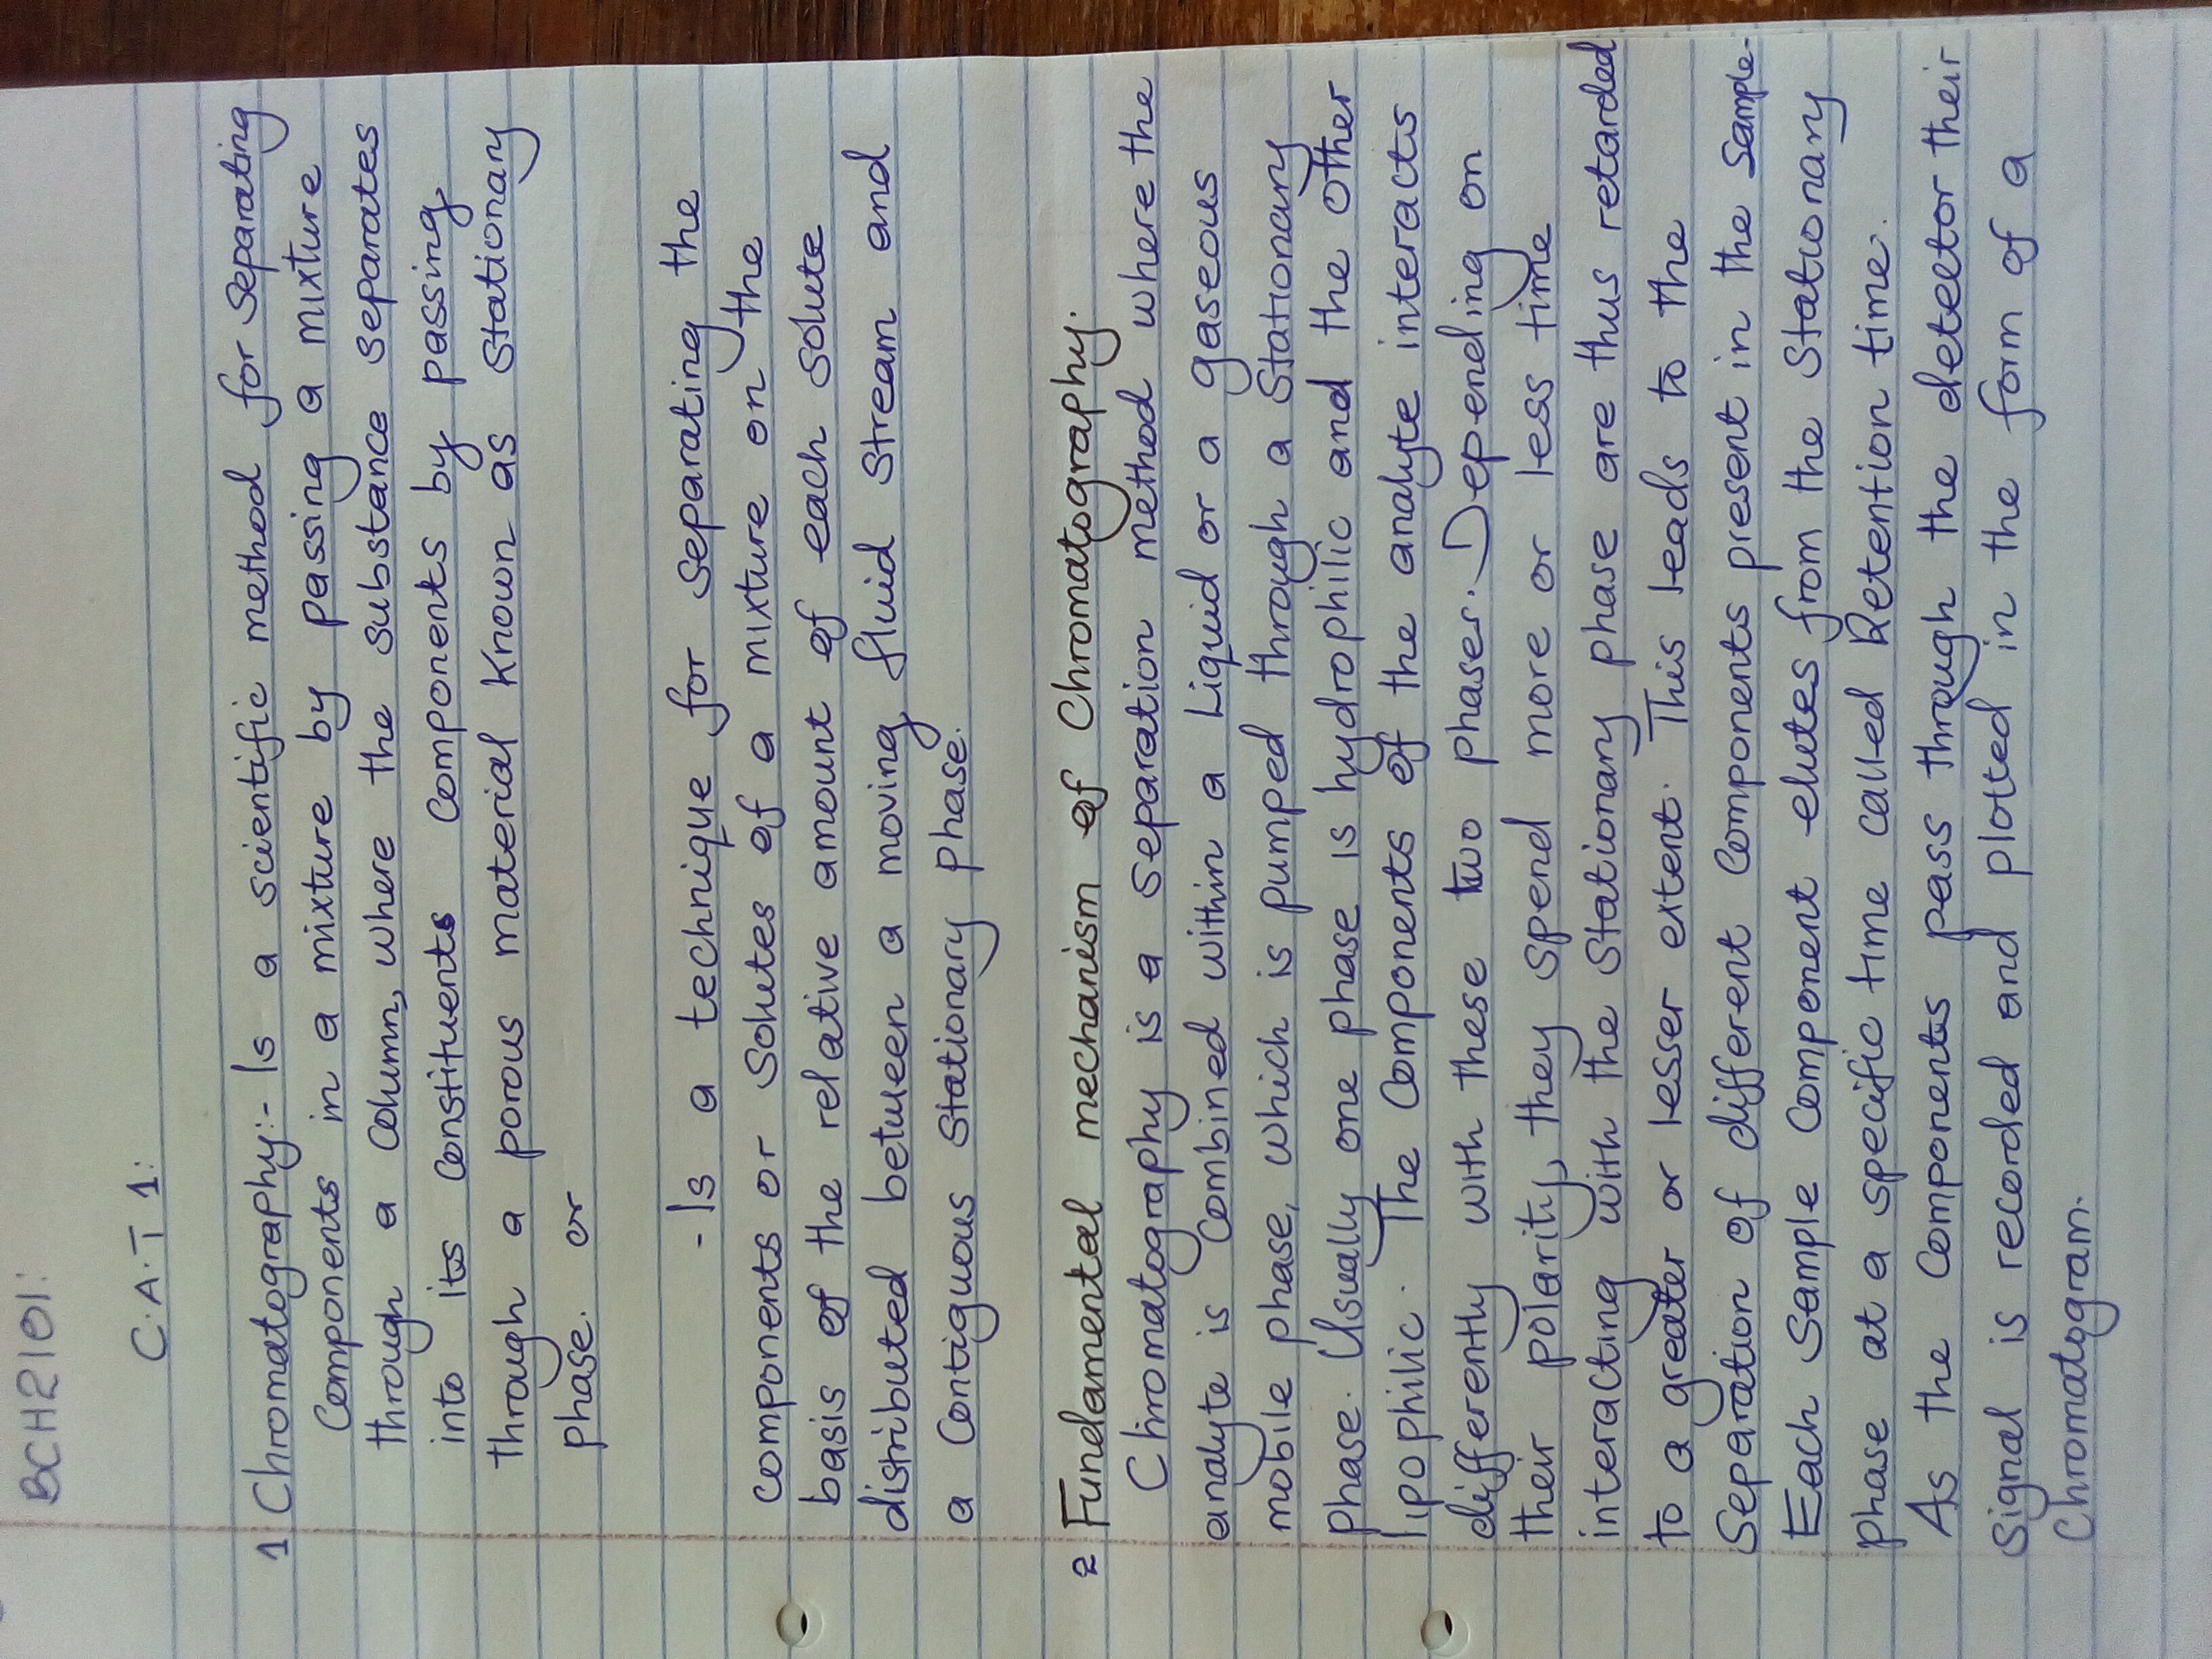 BCH2101:
C.A.T 1:
1 Chromatography:- Is a scientific method for separating
Components in a mixture by passing a mixture
through a column, where the substance separates
into its constituents components by passing
through a porous material known as stationary
phase. or
- Is a technique for separating the
components or solutes of a mixture on the
basis of the relative amount of each solute
distributed between a moving fluid stream and
a contiguous stationary phase.
2 Fundamental mechanism of Chromatography.
Chromatography is a separation method where the
analyte is combined within a liquid or a gaseous
mobile phase, which is pumped through a stationary
phase. Usually one phase is hydrophilic and the other
lipophilic. The components of the analyte interacts
differently with these two phases. Depending on
their polarity, they spend more or less time
interacting with the stationary phase are thus retarded
to a greater or lesser extent. This leads to the
Separation of different components present in the sample.
Each sample component elutes from the stationary
phase at a specific time called Retention time.
As the components pass through the detector their
signal is recorded and plotted in the form of a
Chromatogram.